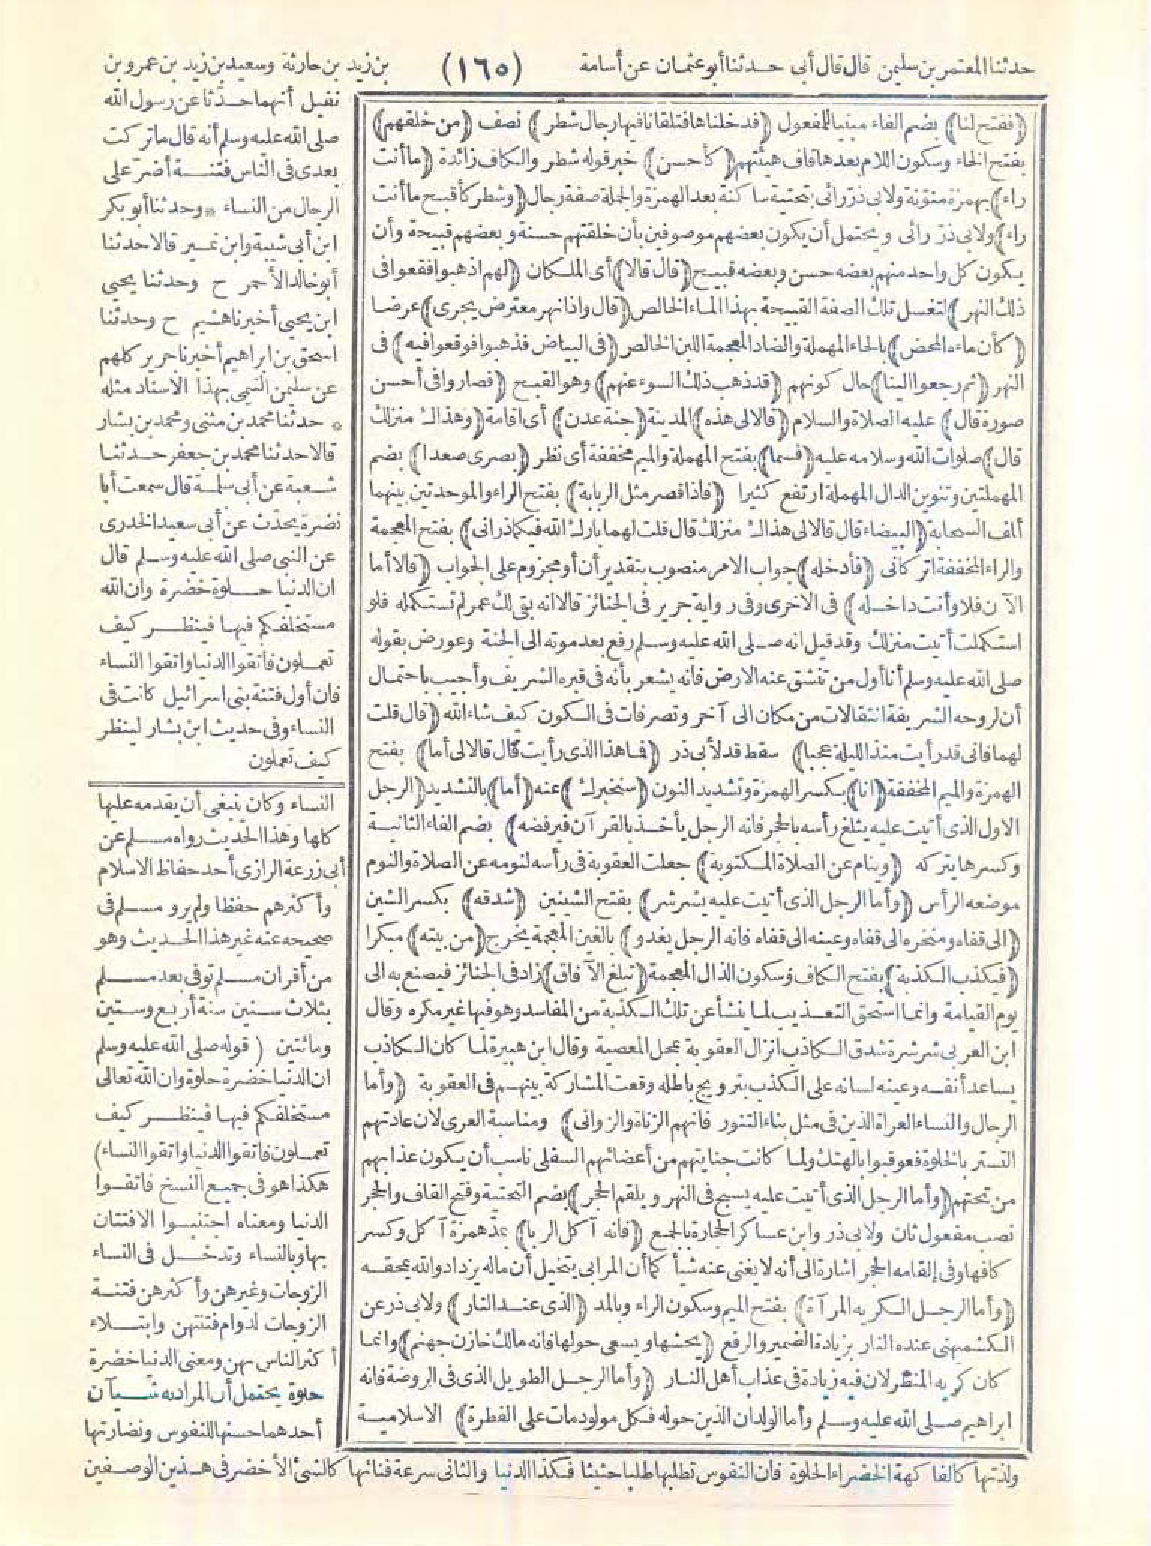 حدثنا المعتمر بن سليمن قال قال أبى حدثنا أبو عثمان عن أسامة (١٦٥) بن زيد بن حارثة وسعيد بن زيد بن عمرو بن
نفيل أنهما حدثا عن رسول الله
صلى الله عليه وسلم أنه قال ماتركت
بعدى فى الناس فتنة أضر على
الرجال من النساء * وحدثنا أبو بكر
ابن أبى شيبة وابن نمير قالا حدثنا
أبو خالد الأحمر ح وحدثنا يحيى
ابن يحيى أخبرنا هشيم ح وحدثنا
اسحق بن ابراهيم أخبرنا جرير كلهم
عن سليمن التيمى بهذا الاسناد مثله
* حدثنا محمد بن مثنى ومحمد بن بشار
قالا حدثنا محمد بن جعفر حدثنا
شعبة عن أبى سلمة قال سمعت أبا
نضرة يحدث عن أبى سعيد الخدرى
عن النبى صلى الله عليه وسلم قال
ان الدنيا حلوة خضرة وان الله
مستخلفكم فيها فينظر كيف
تعملون فاتقوا الدنيا واتقوا النساء
فان أول فتنة بنى اسرائيل كانت فى
النساء وفى حديث ابن بشار لينظر
كيف تعملون
(ففتح لنا) بضم الفاء مبنيا للمفعول (فدخلناها فتلقانا فيها رجال شطر) نصف (من خلقهم)
بفتح الخاء وسكون اللام بعدها قاف هيئتهم (كأحسن) خبر قوله شطر والكاف زائدة (ما أنت
راء) بهمزة منونة ولابى ذر رائى بتحتية ساكنة بعد الهمزة والجملة صفة رجال (وشطر كأقبح ما أنت
راء) ولابى ذر رائى ويحتمل أن يكون بعضهم موصوفين بأن خلقتهم حسنة وبعضهم قبيحة وأن
يكون كل واحد منهم بعضه حسن وبعضه قبيح (قال قالا) أى الملكان (لهم اذهبوا فقعوا فى
ذلك النهر) لتغسل تلك الصفة القبيحة بهذا الماء الخالص (قال واذا نهر معترض يجرى) عرضا
(كأن ماءه المحض) بالحاء المهملة والضاد المعجمة اللبن الخالص (فى البياض فذهبوا فوقعوا فيه) فى
النهر (ثم رجعوا الينا) حال كونهم (قد ذهب ذلك السوء عنهم) وهو القبح (فصاروا فى أحسن
صورة قال) عليه الصلاة والسلام (قالا لى هذه) المدينة (جنة عدن) أى اقامة (وهذاك منزلك
قال) صلوات الله وسلامه عليه (فسما) بفتح المهملة والميم مخففة أى نظر (بصرى صعدا) بضم
المهملتين وتنوين الدال المهملة ارتفع كثيرا (فاذا قصر مثل الربابة) بفتح الراء والموحدتين بينهما
ألف السحابة (البيضاء قال قالا لى هذاك منزلك قال قلت لهما بارك الله فيكما ذرانى) بفتح المعجمة
والراء المخففة اتركانى (فأدخله) جواب الامر منصوب بتقدير أن أو مجزوم على الجواب (قالا أما
الآن فلا وأنت داخله) فى الاخرى وفى رواية جرير فى الجنائز قالا انه بقى لك عمر لم تستكمله فلو
استكملت أتيت منزلك وقد قيل انه صلى الله عليه وسلم رفع بعد موته الى الجنة وعورض بقوله
صلى الله عليه وسلم أنا أول من تنشق عنه الارض فانه يشعر بأنه فى قبره الشريف وأجيب باحتمال
أن لروحه الشريفة انتقالات من مكان الى آخر وتصرفات فى الكون كيف شاء الله (قال قلت
لهما فانى قد رأيت منذ الليلة عجبا) سقط قد لأبى ذر (فما هذا الذى رأيت قال قالا لى أما) بفتح
الهمزة والميم المخففة (انا) بكسر الهمزة وتشديد النون (سنخبرك) عنه (أما) بالتشديد (الرجل
الاول الذى أتيت عليه يثلغ رأسه بالحجر فانه الرجل يأخذ بالقرآن فيرفضه) بضم الفاء الثانية
وكسرها يتركه (وينام عن الصلاة المكتوبة) جعلت العقوبة فى رأسه لنومه عن الصلاة والنوم
موضعه الرأس (وأما الرجل الذى أتيت عليه يشرشر) بفتح الشينين (شدقه) بكسر الشين
(الى قفاه ومنخره الى قفاه وعينه الى قفاه فانه الرجل يغدو) بالغين المعجمة يخرج (من بيته) مبكرا
(فيكذب الكذبة) بفتح الكاف وسكون الذال المعجمة (تبلغ الآفاق) زاد فى الجنائز فيصنع به الى
يوم القيامة وانما استحق التعذيب لما ينشأ عن تلك الكذبة من المفاسد وهو فيها غير مكره وقال
ابن العربى شرشرة شدق الكاذب انزال العقوبة بمحل المعصية وقال ابن هبيرة لما كان الكاذب
يساعد أنفه وعينه لسانه على الكذب بترويج باطله وقعت المشاركة بينهم فى العقوبة (وأما
الرجال والنساء العراة الذين فى مثل بناء التنور فانهم الزناة والزوانى) ومناسبة العرى لان عادتهم
التستر بالخلوة فعوقبوا بالهتك ولما كانت جنايتهم من أعضائهم السفلى ناسب أن يكون عذابهم
من تحتهم (وأما الرجل الذى أتيت عليه يسبح فى النهر ويلقم الحجر) بضم التحتية وفتح القاف والحجر
نصب مفعول ثان ولابى ذر وابن عساكر الحجارة بالجمع (فانه آكل الربا) بمد همزة آكل وكسر
كافها وفى القامه الحجر اشارة الى أنه لا يغنى عنه شيأ كما أن المرابى يتخيل أن ماله يزداد والله يمحقه
(وأما الرجل الكريه المرآة) بفتح الميم وسكون الراء وبالمد (الذى عند النار) ولابى ذر عن
الكشميهنى عنده النار بزيادة الضمير والرفع (يحشها ويسعى حولها فانه مالك خازن جهنم) وانما
كان كريه المنظر لان فيه زيادة فى عذاب أهل النار (وأما الرجل الطويل الذى فى الروضة فانه
ابراهيم صلى الله عليه وسلم وأما الولدان الذين حوله فكل مولود مات على الفطرة) الاسلامية
النساء وكان ينبغى أن يقدمه عليها
كلها وهذا الحديث رواه مسلم عن
أبى زرعة الرازى أحد حفاظ الاسلام
وأكثرهم حفظا ولم يرو مسلم فى
صحيحه عنه غير هذا الحديث وهو
من أقران مسلم توفى بعد مسلم
بثلاث سنين سنة أربع وستين
ومائتين (قوله صلى الله عليه وسلم
ان الدنيا خضرة حلوة وان الله تعالى
مستخلفكم فيها فينظر كيف
تعملون فاتقوا الدنيا واتقوا النساء)
هكذا هو فى جميع النسخ فاتقوا
الدنيا ومعناه اجتنبوا الافتتان
بها وبالنساء وتدخل فى النساء
الزوجات وغيرهن وأكثرهن فتنة
الزوجات لدوام فتنتهن وابتلاء
أكثر الناس بهن ومعنى الدنيا خضرة
حلوة يحتمل أن المراد به شيآن
أحدهما حسنها للنفوس ونضارتها
ولذتها كالفاكهة الخضراء الحلوة فان النفوس تطلبها طلبا حثيثا فكذا الدنيا والثانى سرعة فنائها كالشئ الأخضر فى هذين الوصفين